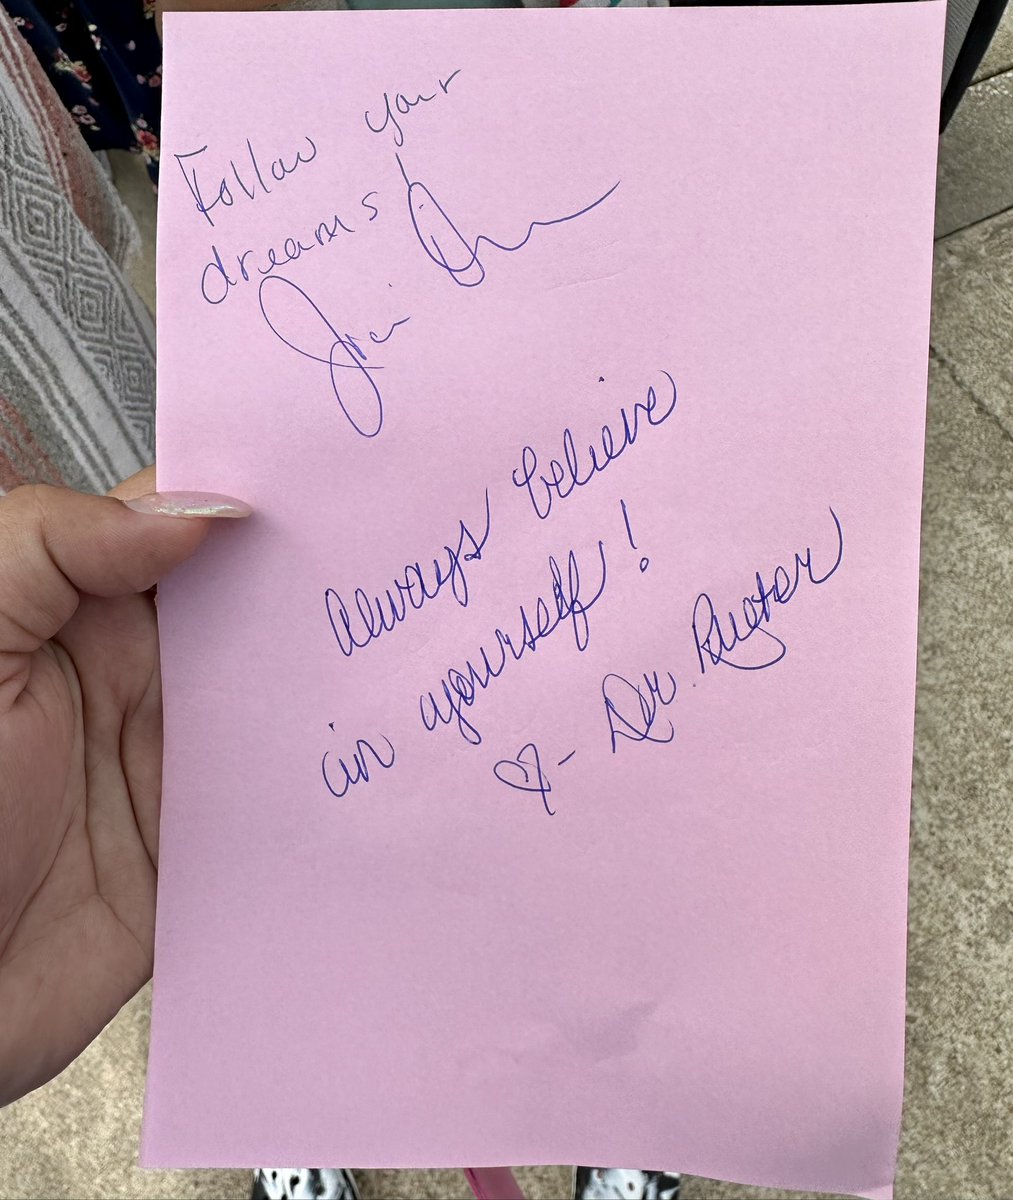 Follow your
dreams!
Always believe
in yourself!
♡- Dr. Rugter